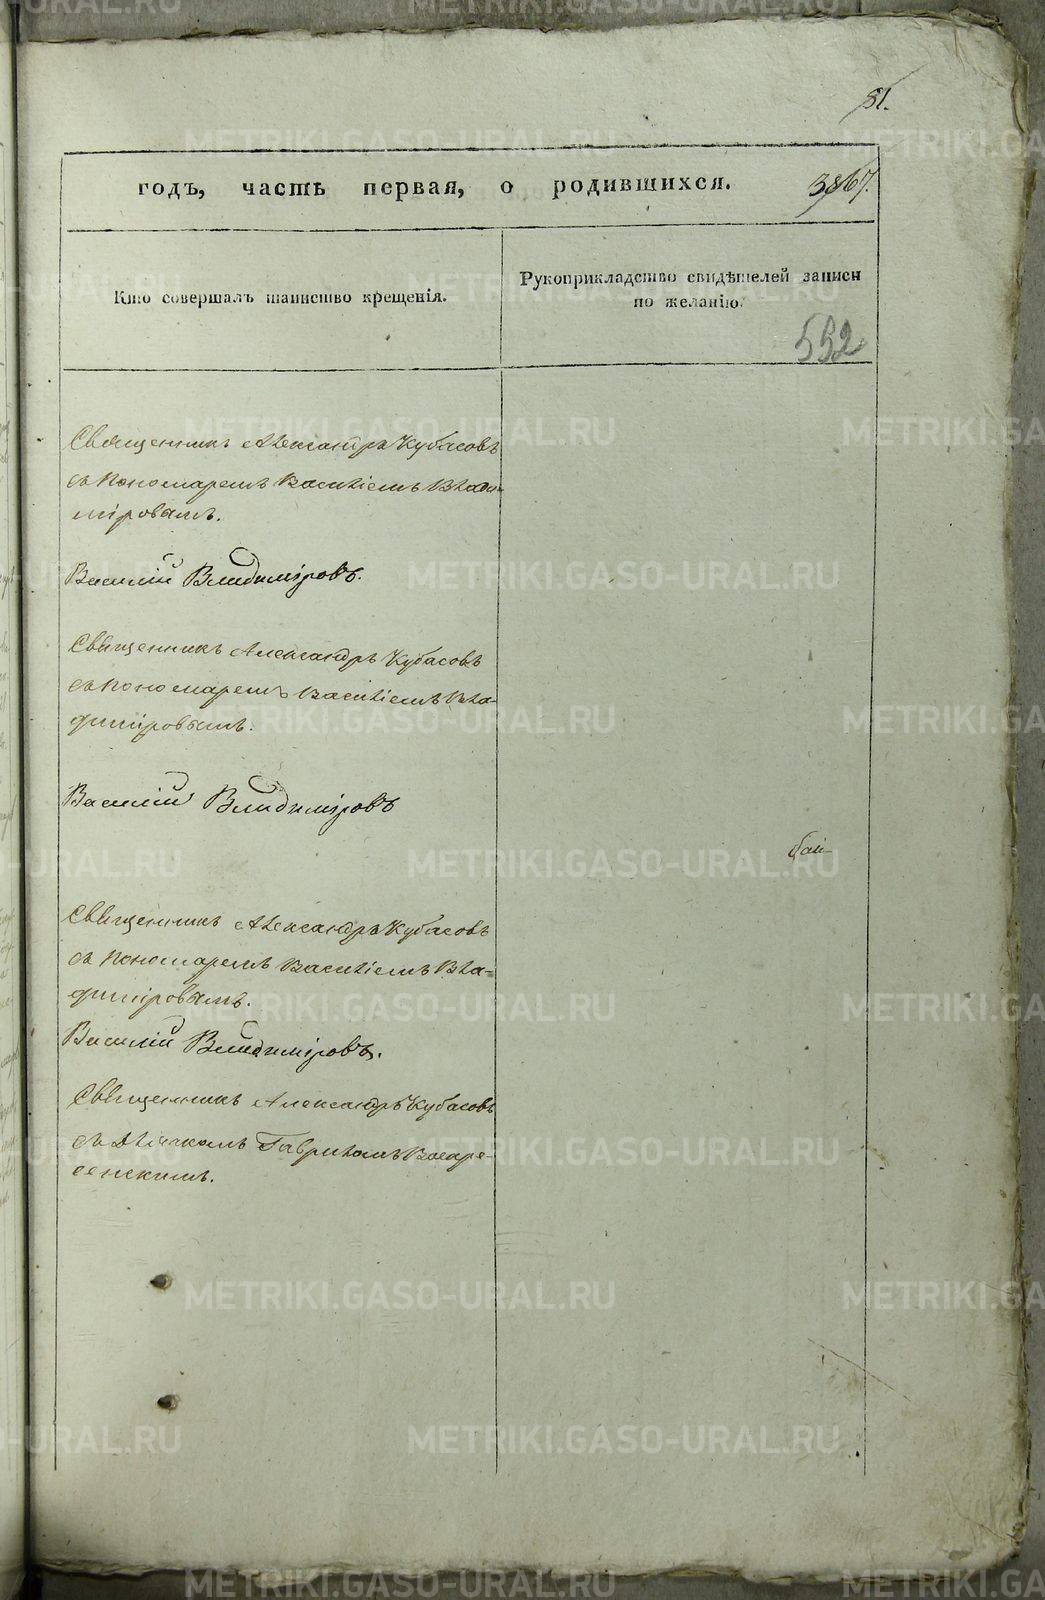 81.
годъ, часть первая, о родившихся.
3867.
Кто совершалъ таинство крещенія.
Рукоприкладство свидѣтелей записи
по желанію.
552
Священникъ Александръ Кубасовъ
съ Пономаремъ Василіемъ Влади-
міровымъ.
Василій Владиміровъ.
Священникъ Александръ Кубасовъ
съ Пономаремъ Василіемъ Вла-
диміровымъ.
Василій Владиміровъ
Священникъ Александръ Кубасовъ
съ Пономаремъ Василіемъ Вла-
диміровымъ.
Василій Владиміровъ.
Священникъ Александръ Кубасовъ
съ Дьячкомъ Гавриломъ Воскре-
сенскимъ.
METRIKI.GASO-URAL.RU